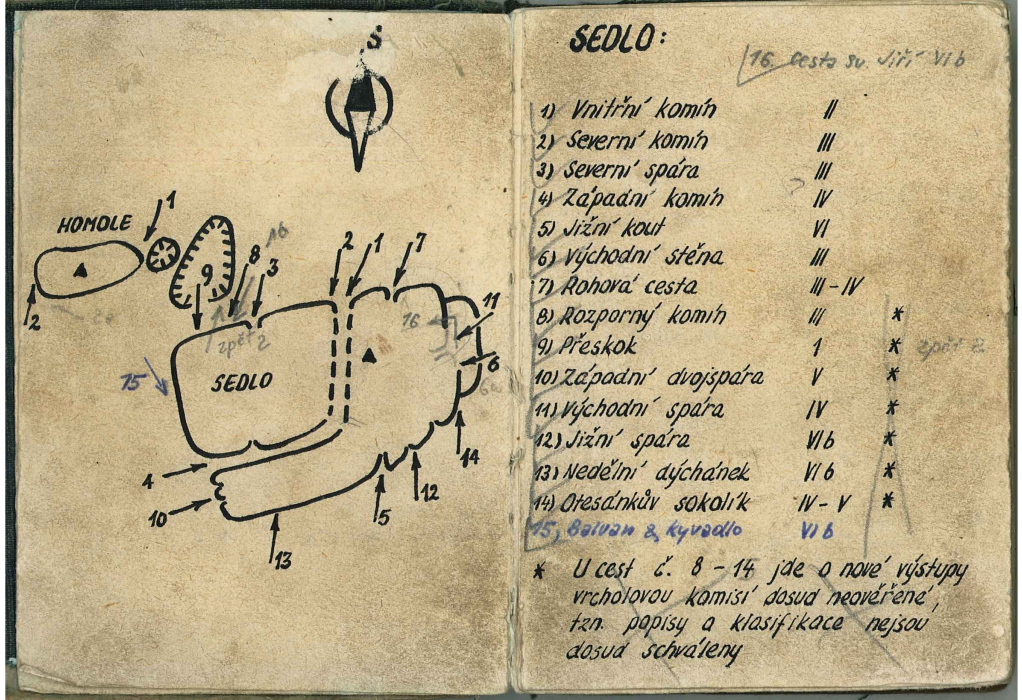 S
HOMOLE
1
2
9
8
16
3
2
1
7
zpět 2
16
11
6
6a
15
SEDLO
4
10
14
12
5
13
SEDLO:
16. Cesta sv. Jiří VIb
1) Vnitřní komín II
2) Severní komín III
3) Severní spára III
4) Západní komín ? IV
5) Jižní kout VI
6) Východní stěna III
7) Rohová cesta III - IV
8) Rozporný komín III *
9) Přeskok 1 * zpět 2
10) Západní dvojspára V *
11) Východní spára IV *
12) Jižní spára VIb *
13) Nedělní dýchánek VIb *
14) Otesánkův sokolík IV - V *
15, Balvan & Kyvadlo VIb
* U cest č. 8 - 14 jde o nové výstupy
vrcholovou komisí dosud neověřené,
tzn. papisy a klasifikace nejsou
dosud schváleny